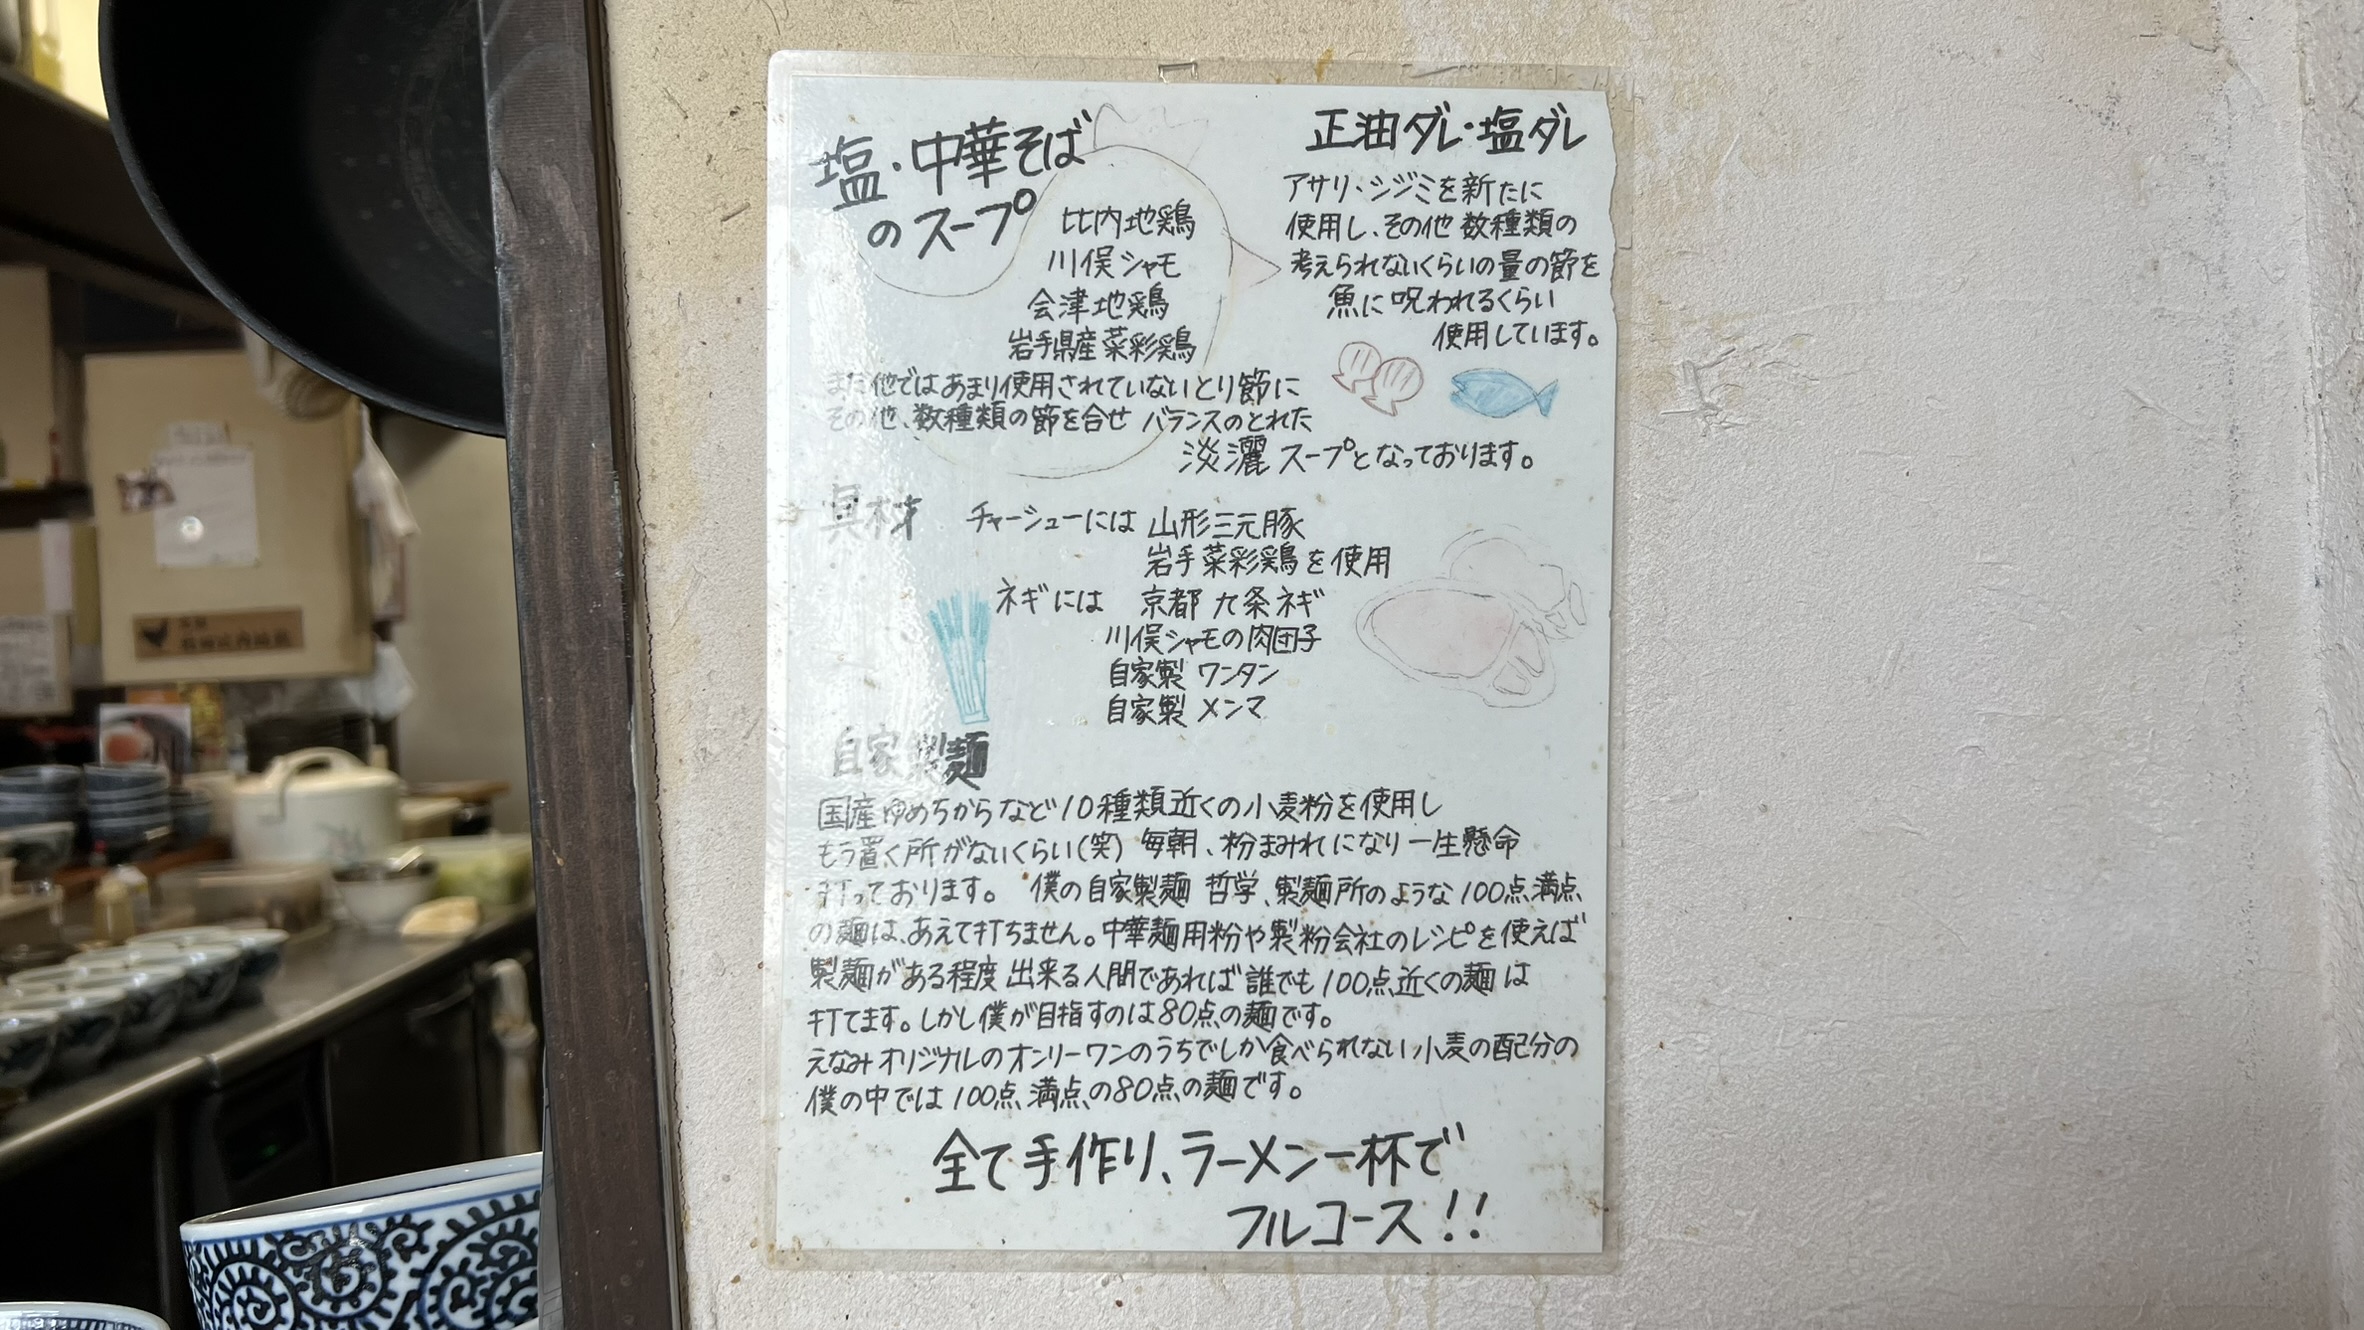 塩・中華そば
のスープ
比内地鶏
川俣シャモ
会津地鶏
岩手県産菜彩鶏
また他ではあまり使用されていないとり節に
その他、数種類の節を合せ バランスのとれた
淡灑スープとなっております。
正油ダレ・塩ダレ
アサリ・シジミを新たに
使用し、その他 数種類の
考えられないくらいの量の節を
魚に呪われるくらい
使用しています。
具材
チャーシューには 山形三元豚
岩手菜彩鶏を使用
ネギには 京都 九条ネギ
川俣シャモの肉団子
自家製 ワンタン
自家製 メンマ
自家製麺
国産ゆめちからなど10種類近くの小麦粉を使用し
もう置く所がないくらい(笑) 毎朝、粉まみれになり一生懸命
打っております。 僕の自家製麺 哲学、製麺所のような100点満点
の麺は、あえて打ちません。中華麺用粉や製粉会社のレシピを使えば
製麺がある程度 出来る人間であれば 誰でも100点近くの麺は
打てます。しかし僕が目指すのは80点の麺です。
えなみオリジナルのオンリーワンのうちでしか食べられない小麦の配分の
僕の中では100点満点の80点の麺です。
全て手作り、ラーメン一杯で
フルコース!!